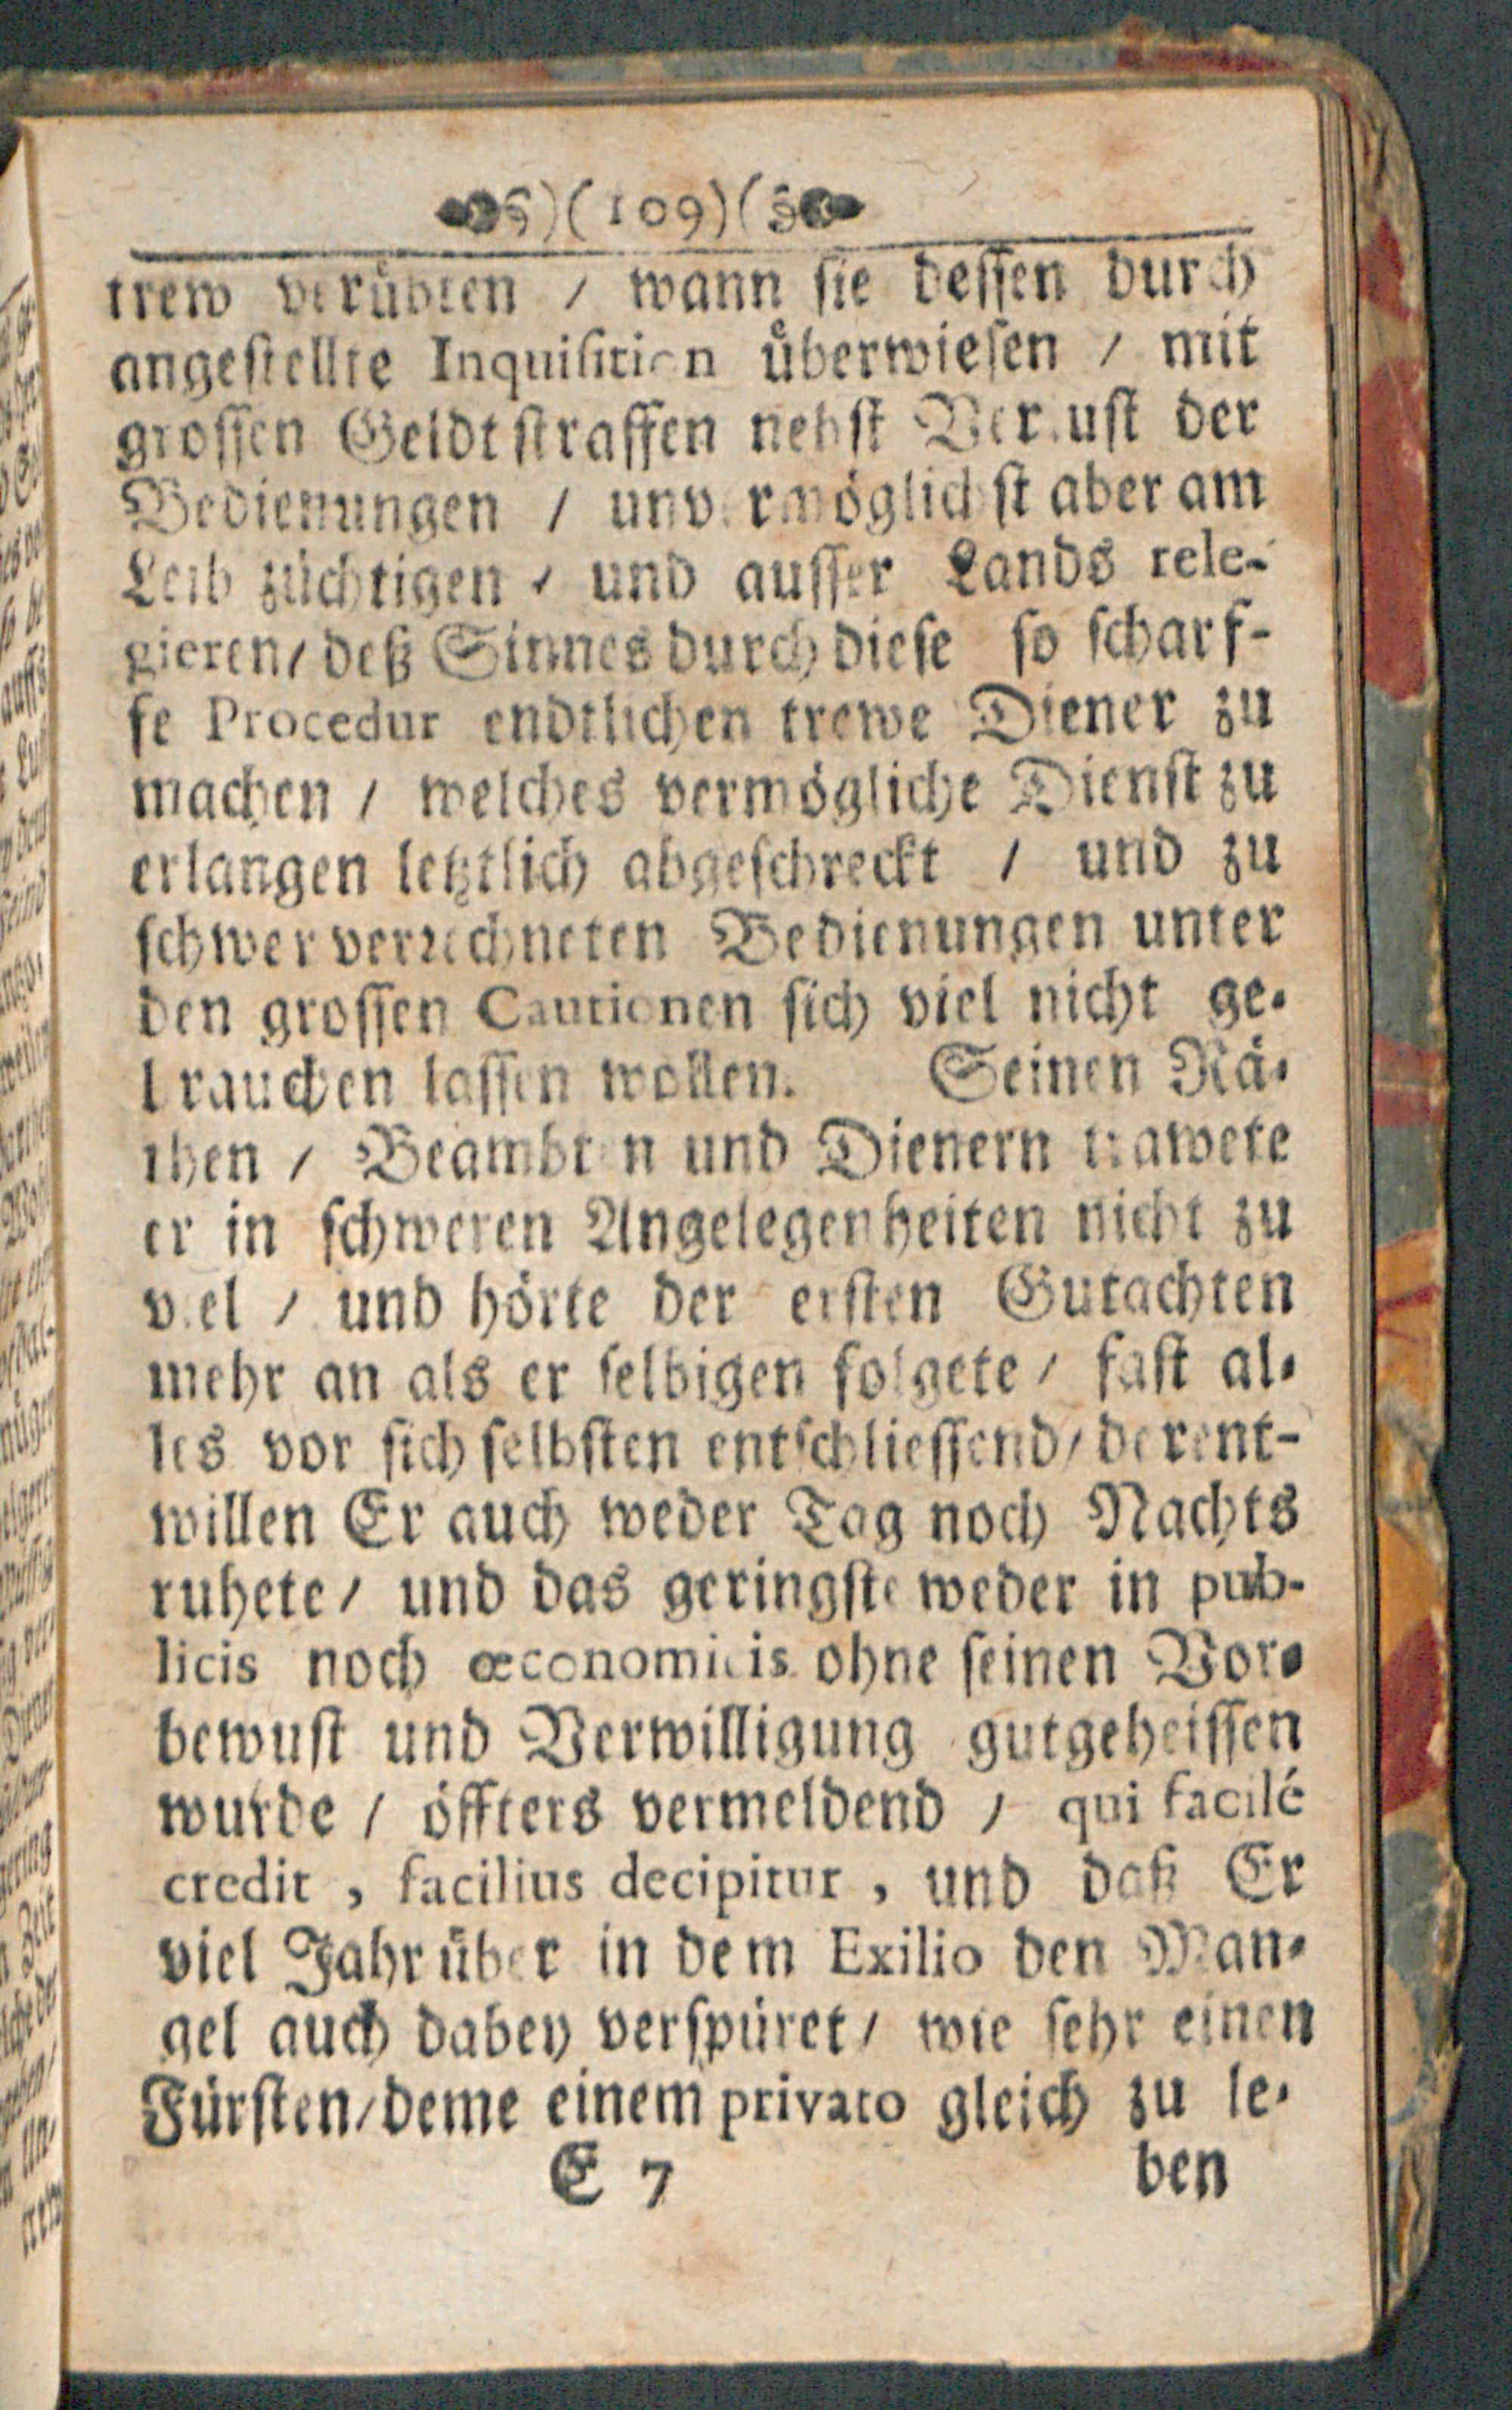 )(109)(
trew verübten / wann sie dessen durch
angestellte Inquisition überwiesen / mit
grossen Geldtstraffen nebst Verlust der
Bedienungen / unvermöglichst aber am
Leib züchtigen / und ausser Lands rele-
gieren / deß Sinnes durch diese so scharf-
fe Procedur endtlichen trewe Diener zu
machen / welches vermögliche Dienst zu
erlangen letztlich abgeschreckt / und zu
schwer verrechneten Bedienungen unter
den grossen Cautionen sich viel nicht ge-
brauchen lassen wollen. Seinen Rä-
then / Beambten und Dienern trawete
er in schweren Angelegenheiten nicht zu
viel / und hörte der ersten Gutachten
mehr an als er selbigen folgete / fast al-
les vor sich selbsten entschliessend / derent-
willen Er auch weder Tag noch Nachts
ruhete / und das geringste weder in pub-
licis noch œconomicis ohne seinen Vor-
bewust und Verwilligung gutgeheissen
wurde / öffters vermeldend / qui facilé
credit , facilius decipitur , und daß Er
viel Jahr über in dem Exilio den Man-
gel auch dabey verspüret / wie sehr einen
Fürsten / deme einem privato gleich zu le-
E 7 ben